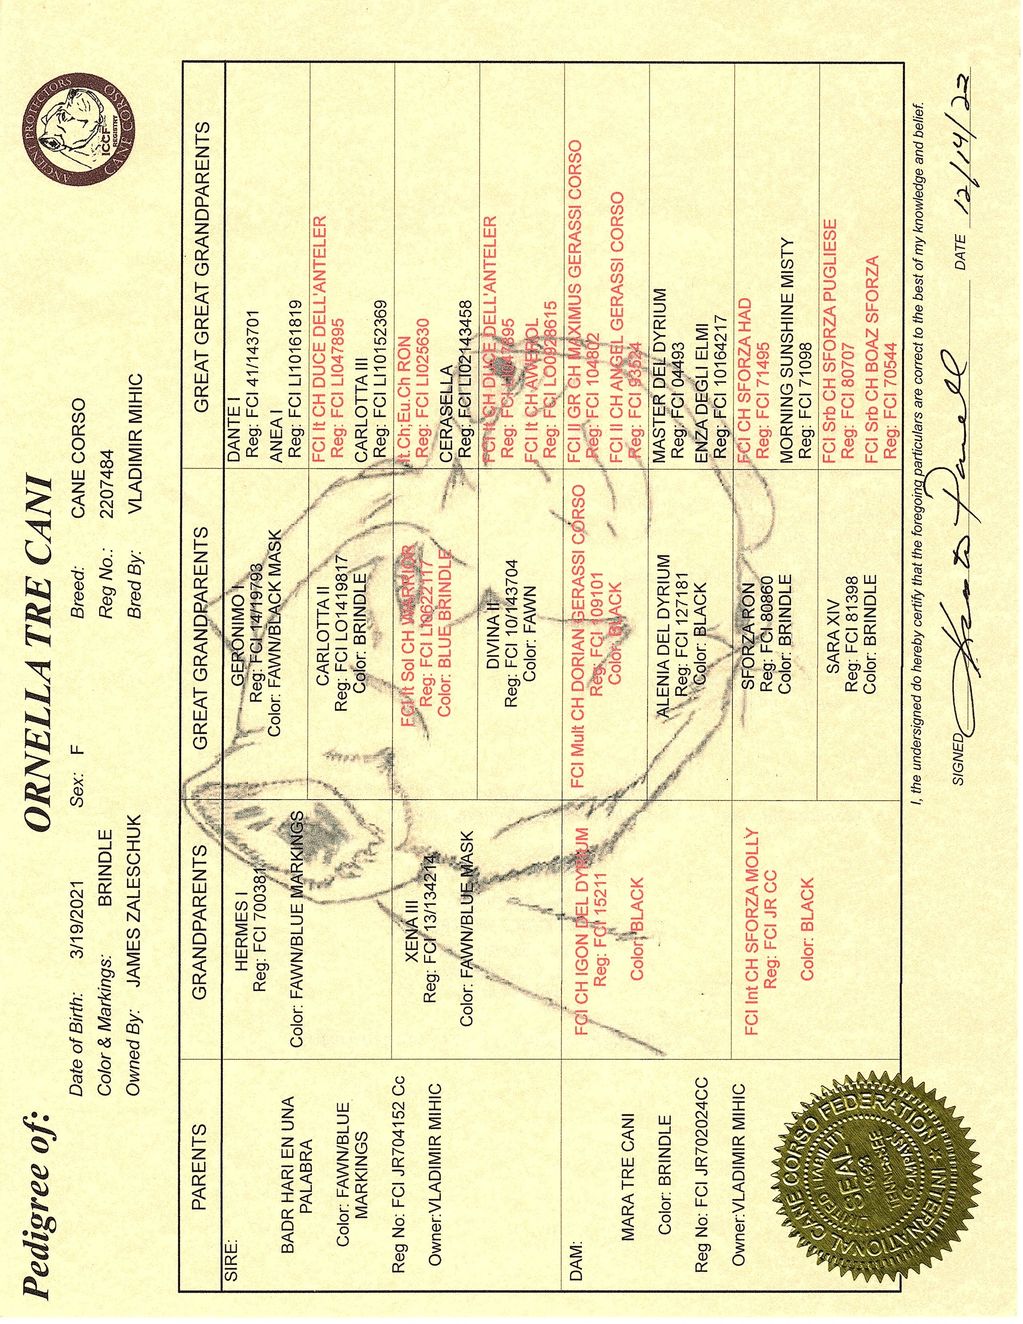 Pedigree of:
ORNELLA TRE CANI
Date of Birth: 3/19/2021 Sex: F Breed: CANE CORSO
Color & Markings: BRINDLE Reg No.: 2207484
Owned By: JAMES ZALESCHUK Bred By: VLADIMIR MIHIC
ANCIENT PROTECTORS
ICCF
REGISTRY
CANE CORSO
PARENTS
GRANDPARENTS
GREAT GRANDPARENTS
GREAT GREAT GRANDPARENTS
SIRE:
BADR HARI EN UNA
PALABRA
Color: FAWN/BLUE
MARKINGS
Reg No: FCI JR704152 Cc
Owner:VLADIMIR MIHIC
DAM:
MARA TRE CANI
Color: BRINDLE
Reg No: FCI JR702024CC
Owner:VLADIMIR MIHIC
HERMES I
Reg: FCI 700381
Color: FAWN/BLUE MARKINGS
XENA III
Reg: FCI 13/134214
Color: FAWN/BLUE MASK
FCI CH IGON DEL DYRIUM
Reg: FCI 15211
Color: BLACK
FCI Int CH SFORZA MOLLY
Reg: FCI JR CC
Color: BLACK
GERONIMO I
Reg: FCI 14/19793
Color: FAWN/BLACK MASK
CARLOTTA II
Reg: FCI LO1419817
Color: BRINDLE
FCI It Sol CH WARRIOR
Reg: FCI LI0622117
Color: BLUE BRINDLE
DIVINA II
Reg: FCI 10/143704
Color: FAWN
FCI Mult CH DORIAN GERASSI CORSO
Reg: FCI 109101
Color: BLACK
ALENIA DEL DYRIUM
Reg: FCI 127181
Color: BLACK
SFORZA RON
Reg: FCI 80860
Color: BRINDLE
SARA XIV
Reg: FCI 81398
Color: BRINDLE
DANTE I
Reg: FCI 41/143701
ANEA I
Reg: FCI LI10161819
FCI It CH DUCE DELL'ANTELER
Reg: FCI LI047895
CARLOTTA III
Reg: FCI LI10152369
It.Ch,Eu.Ch RON
Reg: FCI LI025630
CERASELLA
Reg: FCI LI02143458
FCI It CH DUCE DELL'ANTELER
Reg: FCI LI047895
FCI It CH
Reg: FCI LO0928615
FCI JI GR CH MAXIMUS GERASSI CORSO
Reg: FCI 104802
FCI II CH ANGEL GERASSI CORSO
Reg: FCI 93524
MASTER DEL DYRIUM
Reg: FCI 04493
ENZA DEGLI ELMI
Reg: FCI 10164217
FCI CH SFORZA HAD
Reg: FCI 71495
MORNING SUNSHINE MISTY
Reg: FCI 71098
FCI Srb CH SFORZA PUGLIESE
Reg: FCI 80707
FCI Srb CH BOAZ SFORZA
Reg: FCI 70544
I, the undersigned do hereby certify that the foregoing particulars are correct to the best of my knowledge and belief.
SIGNED DATE 12/14/22
INTERNATIONAL CANE CORSO FEDERATION
LIMITED LIABILITY COMPANY
SEAL
TENNESSEE